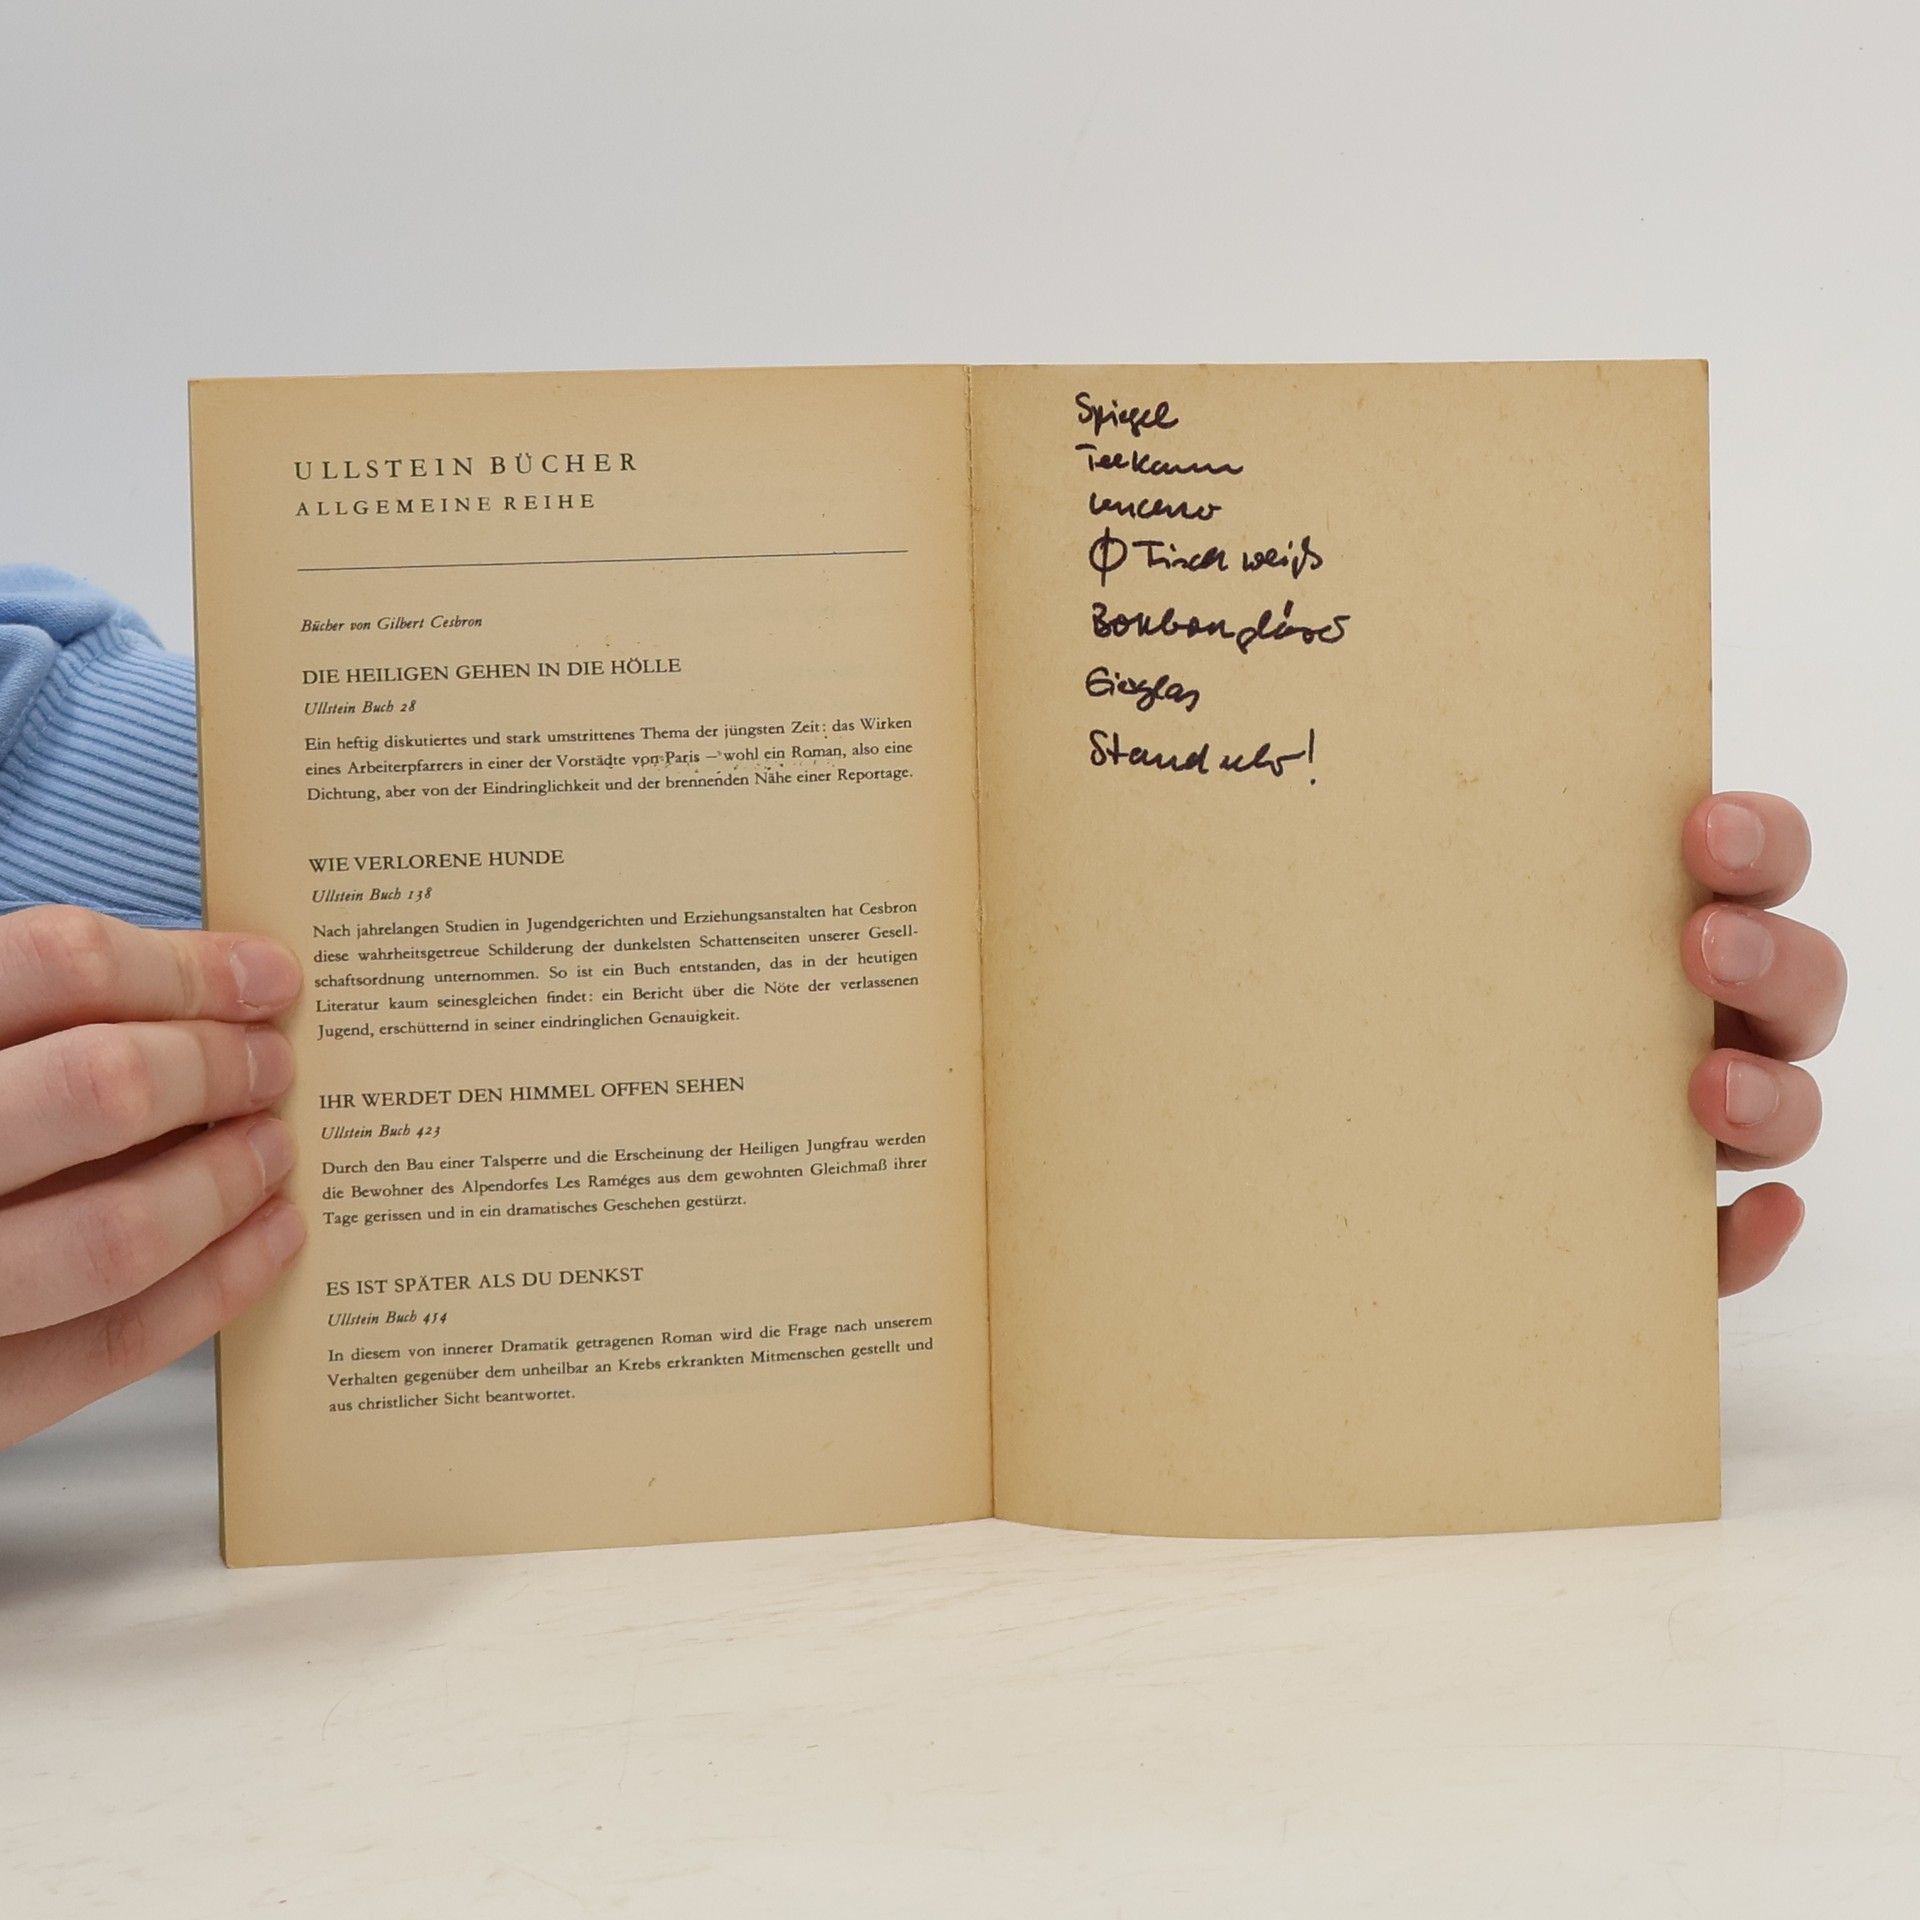 ULLSTEIN BÜCHER
ALLGEMEINE REIHE
Bücher von Gilbert Cesbron
DIE HEILIGEN GEHEN IN DIE HÖLLE
Ullstein Buch 28
Ein heftig diskutiertes und stark umstrittenes Thema der jüngsten Zeit: das Wirken
eines Arbeiterpfarrers in einer der Vorstädte von Paris – wohl ein Roman, also eine
Dichtung, aber von der Eindringlichkeit und der brennenden Nähe einer Reportage.
WIE VERLORENE HUNDE
Ullstein Buch 138
Nach jahrelangen Studien in Jugendgerichten und Erziehungsanstalten hat Cesbron
diese wahrheitsgetreue Schilderung der dunkelsten Schattenseiten unserer Gesell-
schaftsordnung unternommen. So ist ein Buch entstanden, das in der heutigen
Literatur kaum seinesgleichen findet: ein Bericht über die Nöte der verlassenen
Jugend, erschütternd in seiner eindringlichen Genauigkeit.
IHR WERDET DEN HIMMEL OFFEN SEHEN
Ullstein Buch 423
Durch den Bau einer Talsperre und die Erscheinung der Heiligen Jungfrau werden
die Bewohner des Alpendorfes Les Raméges aus dem gewohnten Gleichmaß ihrer
Tage gerissen und in ein dramatisches Geschehen gestürzt.
ES IST SPÄTER ALS DU DENKST
Ullstein Buch 454
In diesem von innerer Dramatik getragenen Roman wird die Frage nach unserem
Verhalten gegenüber dem unheilbar an Krebs erkrankten Mitmenschen gestellt und
aus christlicher Sicht beantwortet.
Spiegel
Teekanne
Ø Tisch weiß
Bonbongläser
Standuhr!